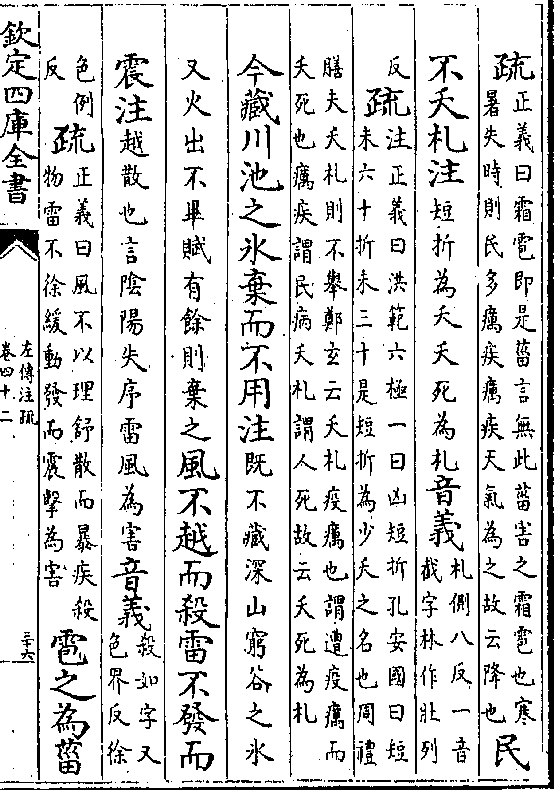 疏正義曰霜雹即是菑言無此菑害之霜雹也寒
暑失時則民多癘疾癘疾天氣為之故云降也民
不夭札注短折為夭夭死為札音義札側八反一音
截字林作壯列
反疏注正義曰洪範六極一曰凶短折孔安國曰短
未六十折未三十是短折為少夭之名也周禮
膳夫夭札則不舉鄭玄云夭札疫癘也謂遭疫癘而
夭死也癘疾謂民病夭札謂人死故云夭死為札
今藏川池之氷棄而不用注既不藏深山窮谷之氷
又火出不畢賦有餘則棄之風不越而殺雷不發而
震注越散也言陰陽失序雷風為害音義殺如字又
色界反徐
色例
反疏正義曰風不以理舒散而暴疾殺
物雷不徐緩動發而震擊為害雹之為菑
欽定四庫全書
左傳注疏
卷四十二
三十六